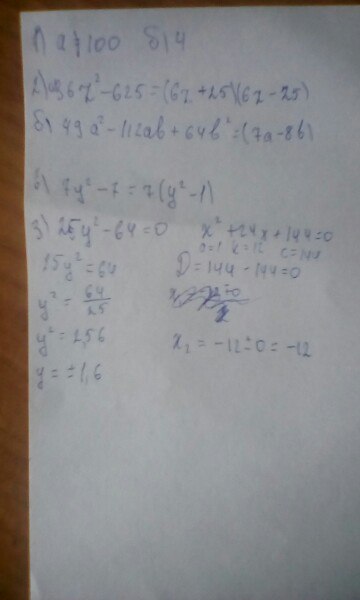 1) а) 100 б) 4
2) а) 36x² - 625 = (6x + 25)(6x - 25)
б) 49a² - 112ab + 64b² = (7a - 8b)
в) 7y² - 7 = 7(y² - 1)
3) 25y² - 64 = 0
25y² = 64
y² = 64/25
y² = 2,56
y = ± 1,6
x² + 24x + 144 = 0
a = 1 k = 12 c = 144
D = 144 - 144 = 0
x₂ = -12 ± 0 = -12